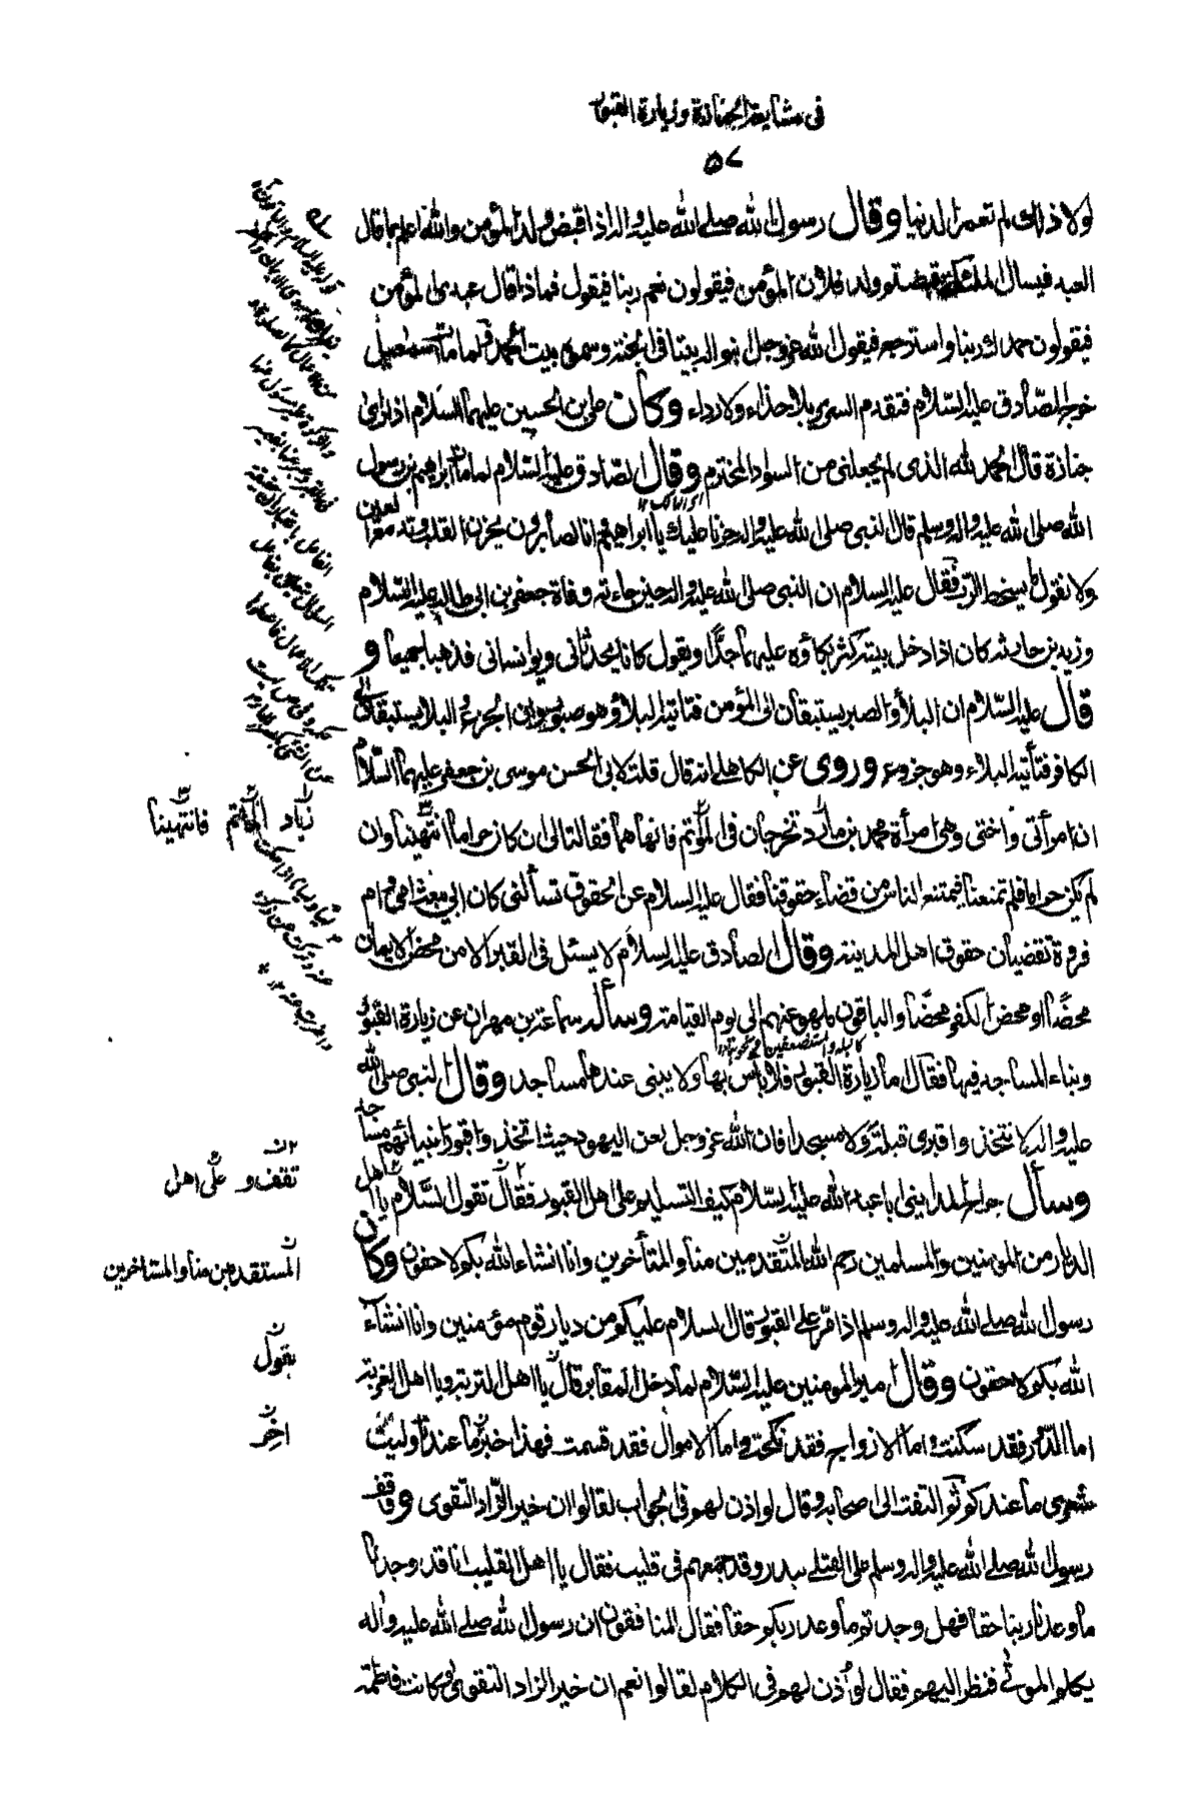 في مشايعة الجنازة وزيارة القبور
٥٧
ولا ذلك لم تعمر الدنيا وقال رسول الله صلى الله عليه واله اذا قبض ولد المؤمن والله اعلم بما قال
العبد فيسال الملئكة قبضتم ولد فلان المؤمن فيقولون نعم ربنا فيقول فماذا قال عبدى المؤمن
فيقولون حمدك ربنا واسترجع فيقول الله عز وجل ابنوا له بيتا في الجنة وسموه بيت الحمد ولما مات اسمعيل
خرج الصادق عليه السلام فتقدم السرير بلا حذاء ولا رداء وكان على بن الحسين عليهما السلام اذا راى
جنازة قال الحمد لله الذى لم يجعلنى من السواد المخترم وقال الصادق عليه السلام لما مات ابراهيم بن رسول
اى الهالك ١٢
الله صلى الله عليه واله وسلم قال النبى صلى الله عليه واله حزنا عليك يا ابراهيم وانا لصابرون يحزن القلب وتدمع العين
ولا نقول ما يسخط الرب فقال عليه السلام ان النبى صلى الله عليه واله حين جاءته وفاة جعفر بن ابى طالب عليه السلام
وزيد بن حارثه كان اذا دخل بيته كثر بكاؤه عليهما جدا ويقول كانا يحدثانى ويوانسانى فذهبا جميعا و
قال عليه السلام ان البلاء والصبر يستبقان الى المؤمن فتاتيه البلاء وهو صبور وان الجزع والبلاء يستبقان الى
الكافر فتأتيه البلاء وهو جزوع وروى عن الكاهلى انه قال قلت لابى الحسن موسى بن جعفر عليهما السلام
ان امرأتى واختى وهى امرأة محمد بن مارد تخرجان فى المأتم فانهاهما فقالتا لى ان كان حراما انتهينا وان
لم يكن حراما فلم تمنعنا فيمتنع الناس من قضاء حقوقنا فقال عليه السلام عن الحقوق تسألنى كان ابى يبعث امى وام
فروة تقضيان حقوق اهل المدينة وقال الصادق عليه السلام لا يسئل فى القبر الا من محض الايمان
محضا او محض الكفر محضا والباقون ملهو عنهم الى يوم القيامة وسأله سماعة بن مهران عن زيارة القبور
وبناء المساجد فيها فقال اما زيارة القبور فلا باس بها ولا يبنى عندها مساجد وقال النبى صلى الله
عليه واله لا تتخذوا قبرى قبلة ولا مسجدا فان الله عز وجل لعن اليهود حيث اتخذوا قبور انبيائهم مساجد
وسأل جراح المداينى ابا عبد الله عليه السلام كيف التسليم على اهل القبور فقال تقول السلام يا اهل
الديار من المومنين والمسلمين رحم الله المتقدمين منا والمتأخرين وانا انشاء الله بكم لاحقون وكان
رسول الله صلى الله عليه واله وسلم اذا مر على القبور قال السلام عليكم من ديار قوم مؤمنين وانا انشاء
الله بكم لاحقون وقال امير المومنين عليه السلام لما دخل المقابر قال يا اهل التربة ويا اهل الغربة
اما الدور فقد سكنت واما الازواج فقد نكحت واما الاموال فقد قسمت فهذا خبر ما عندنا وليت
شعرى ما عندكم ثم التفت الى اصحابه وقال لو اذن لهم فى الجواب لقالوا ان خير الزاد التقوى ووقف
رسول الله صلى الله عليه واله وسلم على القتلى ببدر وقد جمعهم فى قليب فقال يا اهل القليب انا قد وجدنا
ما وعدنا ربنا حقا فهل وجدتم ما وعد ربكم حقا فقال المنافقون ان رسول الله صلى الله عليه واله
يكلم الموتى فنظر اليهم فقال لو اذن لهم فى الكلام لقالوا نعم ان خير الزاد التقوى وكانت فاطمة
زياد المأتم فانتهينا
تقف و على اهل
المستقدمين منا والمستاخرين
يقول
اخر